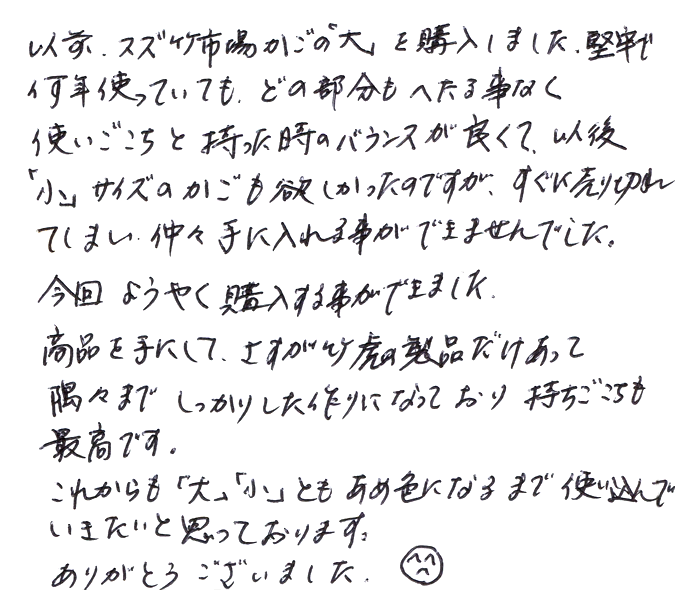 以前、スズ竹市場かごの「大」を購入しました。堅牢で
何年使っていても、どの部分もへたる事なく
使いごこちと持った時のバランスが良くて、以後
「小」サイズのかごも欲しかったのですが、すぐに売り切れ
てしまい、仲々手に入れる事ができませんでした。
今回ようやく購入する事ができました。
商品を手にして、さすが竹虎の製品だけあって
隅々までしっかりした作りになっており持ちごこちも
最高です。
これからも「大」「小」ともあめ色になるまで使い込んで
いきたいと思っております。
ありがとうございました。